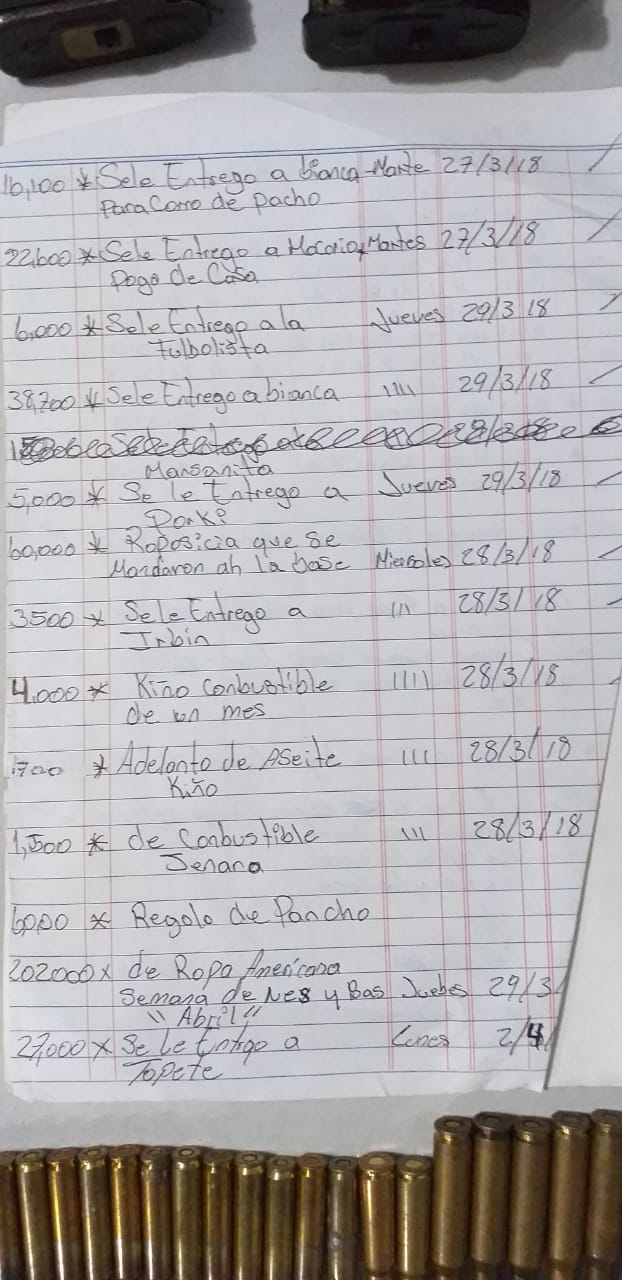 16,100 * Sele Entrego a bianca Marte 27/3/18
Para Carro de pacho
22,600 * Sele Entrego a Macario, Martes 27/3/18
Pago de Casa
6,000 * Sele Entrego a la Jueves 29/3 18
Fulbolista
38,700 * Sele Entrego a bianca 29/3/18
Mansanita
5,000 * Se le Entrego a Jueves 29/3/18
60,000 * que se
Mandaron ah la base 28/3/18
3500 * Sele Entrego a 28/3/18
Irbin
4,000 * Kiño Conbustible 28/3/18
de un mes
1700 * Adelanto de Aseite 28/3/18
Kiño
1,500 * de Conbustible 28/3/18
Semana
6000 * Regalo de Pancho
202000 x de Ropa Americana
Semana de Nes y Bas Juebes 29/3
"Abril"
27,000 x Se le a Lunes 2/4
Topete